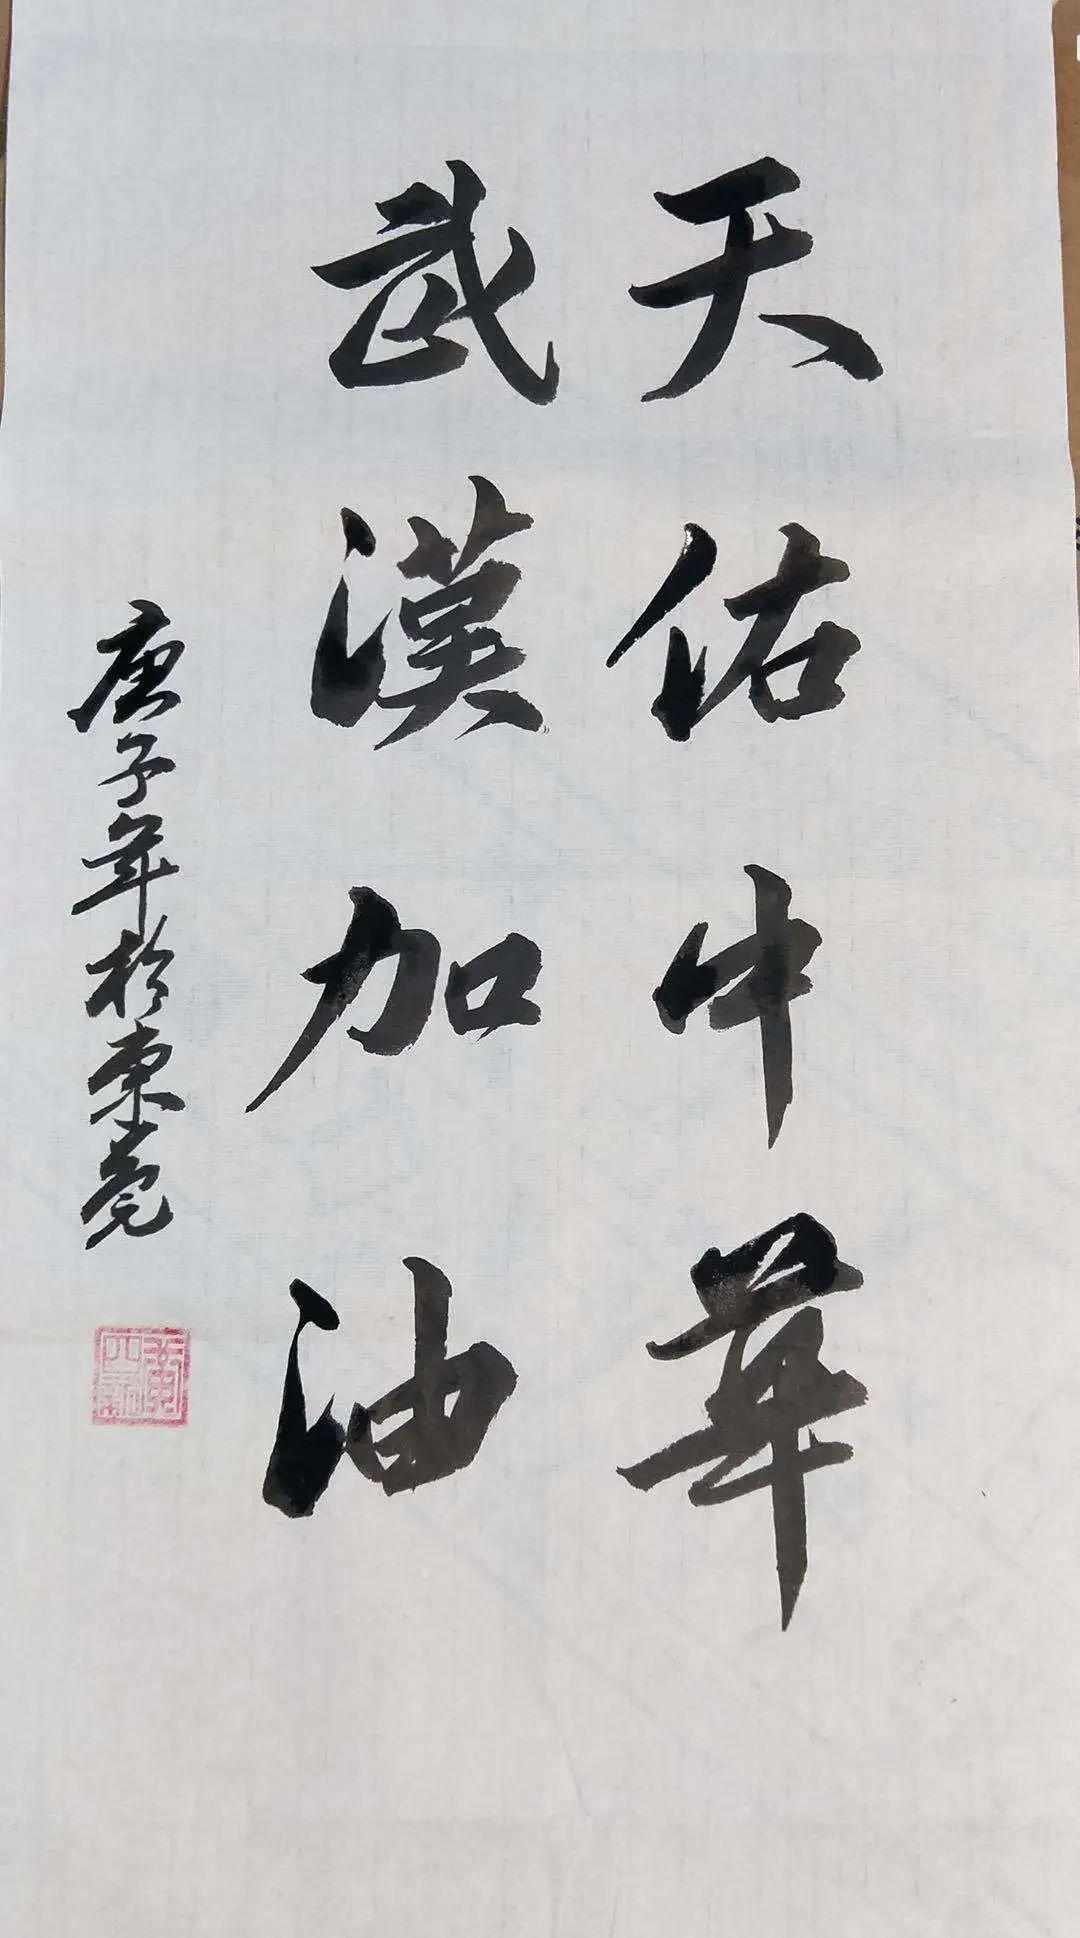 天佑中華
武漢加油
庚子年於東莞